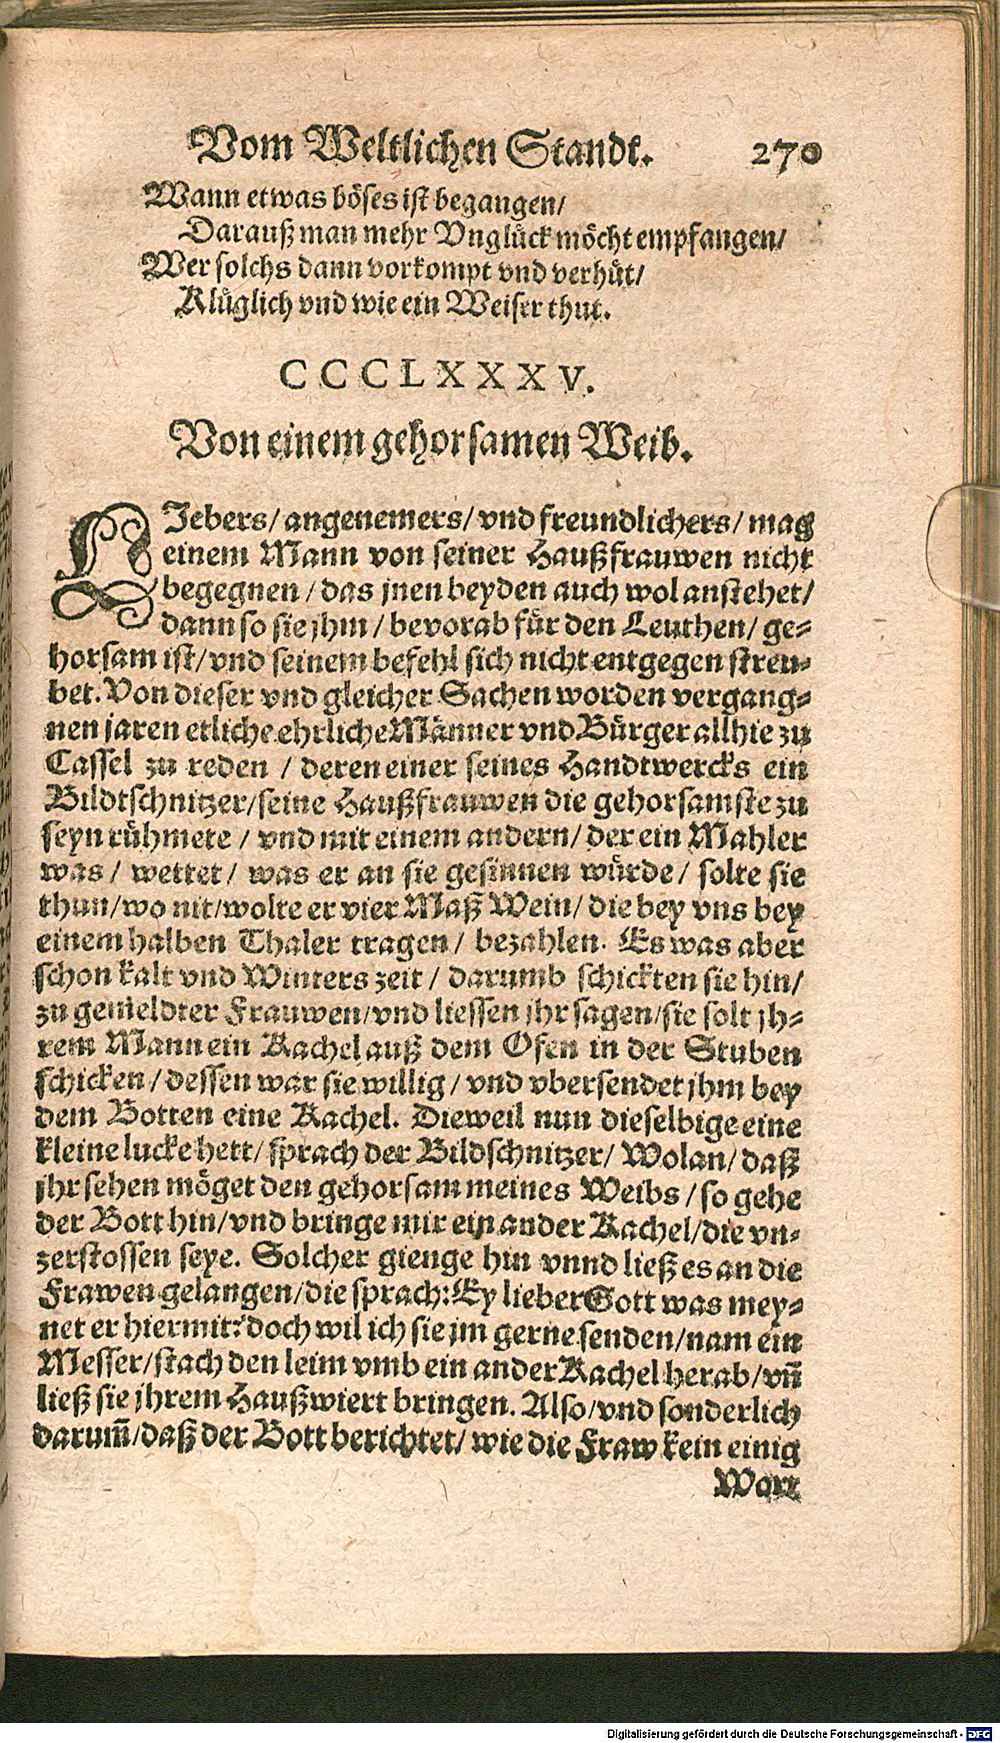 Vom Weltlichen Standt. 270
Wann etwas böses ist begangen/
Darauß man mehr Vnglück möcht empfangen/
Wer solchs dann vorkompt vnd verhüt/
Klüglich vnd wie ein Weiser thut.
CCCLXXXV.
Von einem gehorsamen Weib.
LIebers/ angenemers/ vnd freundlichers/ mag
einem Mann von seiner Haußfrauwen nicht
begegnen/ das jnen beyden auch wol anstehet/
dann so sie jhm/ bevorab für den Leuthen/ ge-
horsam ist/ vnd seinem befehl sich nicht entgegen streu-
bet. Von dieser vnd gleicher Sachen worden vergang-
nen jaren etliche ehrliche Männer vnd Bürger allhie zu
Cassel zu reden / deren einer seines Handtwercks ein
Bildtschnitzer/ seine Haußfrauwen die gehorsamste zu
seyn rühmete / vnd mit einem andern/ der ein Mahler
was/ wettet/ was er an sie gesinnen würde/ solte sie
thun/ wo nit/ wolte er vier Maß Wein/ die bey vns bey
einem halben Thaler tragen/ bezahlen. Es was aber
schon kalt vnd Winters zeit/ darumb schickten sie hin/
zu gemeldter Frauwen/ vnd liessen jhr sagen/ sie solt jh-
rem Mann ein Kachel auß dem Ofen in der Stuben
schicken/ dessen war sie willig/ vnd vbersendet jhm bey
dem Botten eine Kachel. Dieweil nun dieselbige eine
kleine lucke hett/ sprach der Bildschnitzer/ Wolan/ daß
jhr sehen möget den gehorsam meines Weibs/ so gehe
der Bott hin/ vnd bringe mir ein ander Kachel/ die vn-
zerstossen seye. Solcher gienge hin vnnd ließ es an die
Frawen gelangen/ die sprach: Ey lieber Gott was mey-
net er hiermit? doch wil ich sie jm gerne senden/ nam ein
Messer/ stach den leim vmb ein ander Kachel herab/ vñ
ließ sie jhrem Haußwiert bringen. Also/ vnd sonderlich
darum̃/ daß der Bott berichtet/ wie die Fraw kein einig
Wort
Digitalisierung gefördert durch die Deutsche Forschungsgemeinschaft - DFG